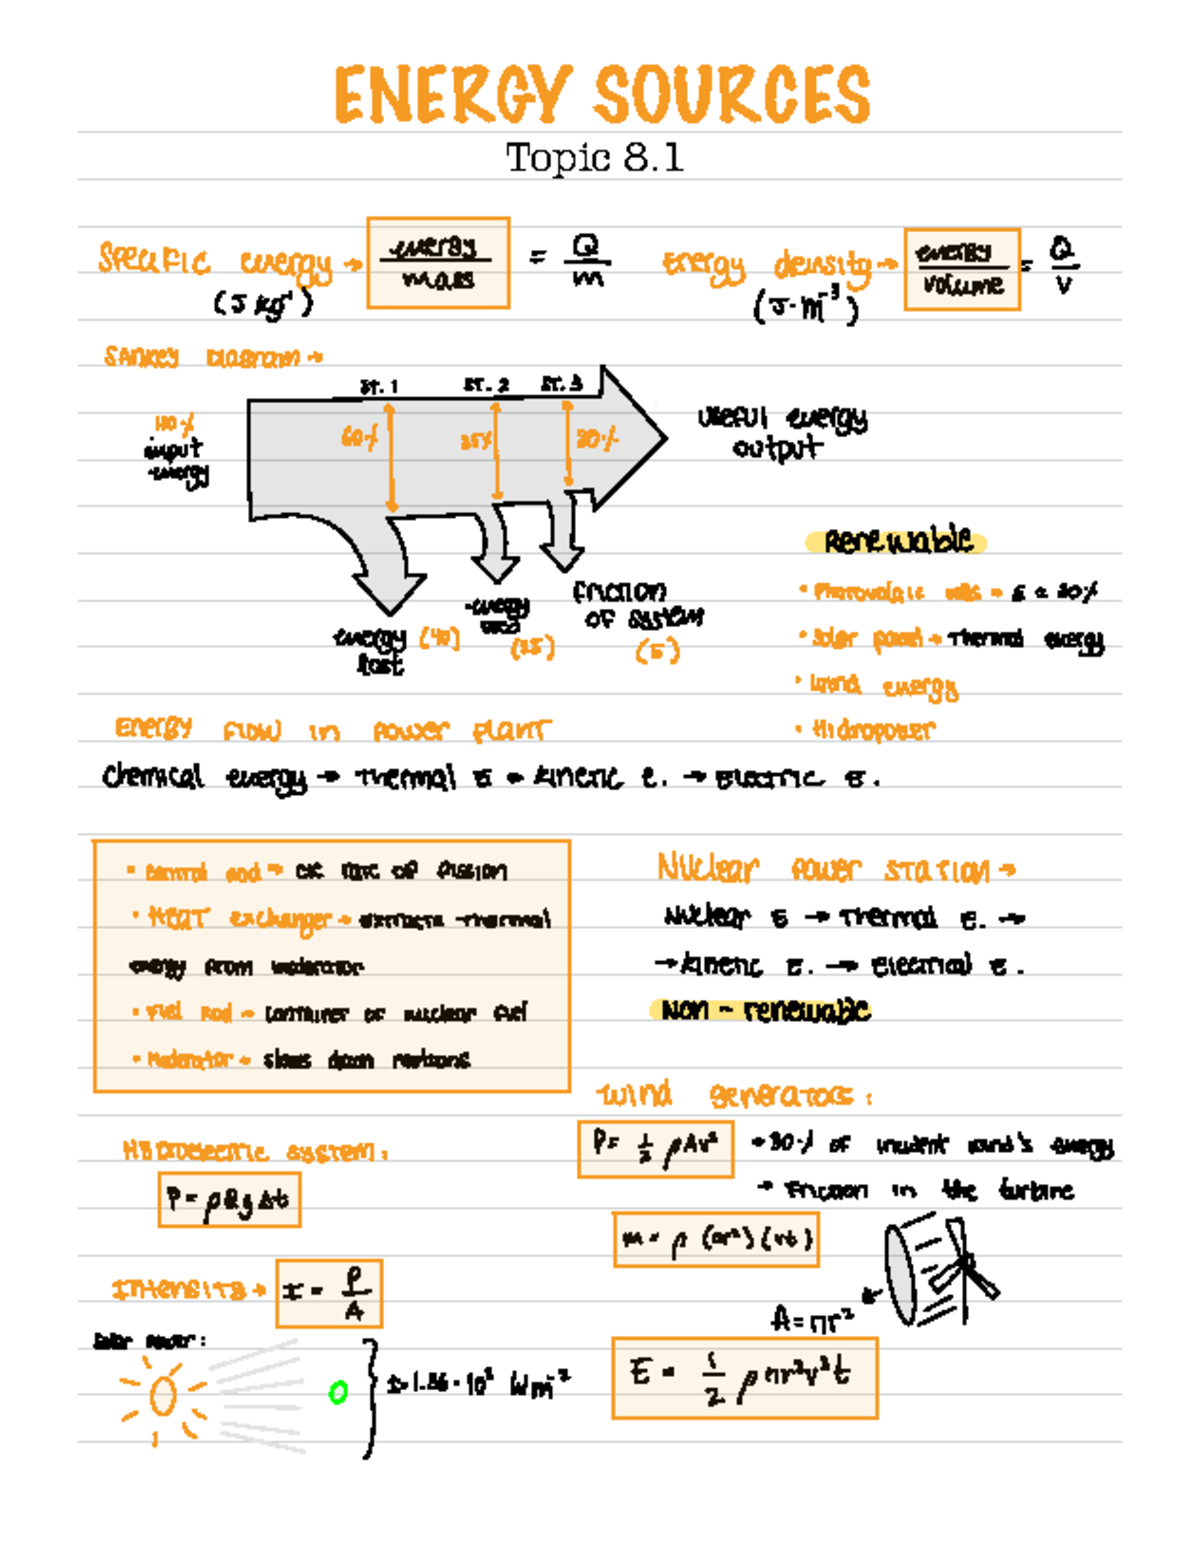 ENERGY SOURCES
Topic 8.1
Specific energy → energy/mass = Q/m
(J kg⁻¹)
Energy density → energy/volume = Q/V
(J·m⁻³)
Sankey Diagram →
ST. 1 ST. 2 ST. 3
input energy
60% 30%
useful energy output
energy lost (40)
energy
friction of system (5)
Renewable
• Photovoltaic cells
• Solar panel → Thermal energy
• Wind energy
• Hidropower
Energy flow in power plant
Chemical energy → Thermal E → kinetic e. → Electric E.
• Control rod → rate of fission
• HEAT exchanger → extracts thermal
energy from moderator
• Fuel Rod → container of nuclear fuel
• Moderator → slows down
Nuclear power station →
Nuclear E → Thermal E. →
→ kinetic E. → Electrical E.
Non - renewable
Wind generators:
P = 1/2 ρAv³ → 30% of incident wind's energy
→ Friction in the turbine
m = ρ (πr²)(vt)
A = πr²
E = 1/2 ρπr²v³t
Hydroelectric system:
P = ρQg Δt
Intensity → I = P/A
Solar power:
Wm⁻²